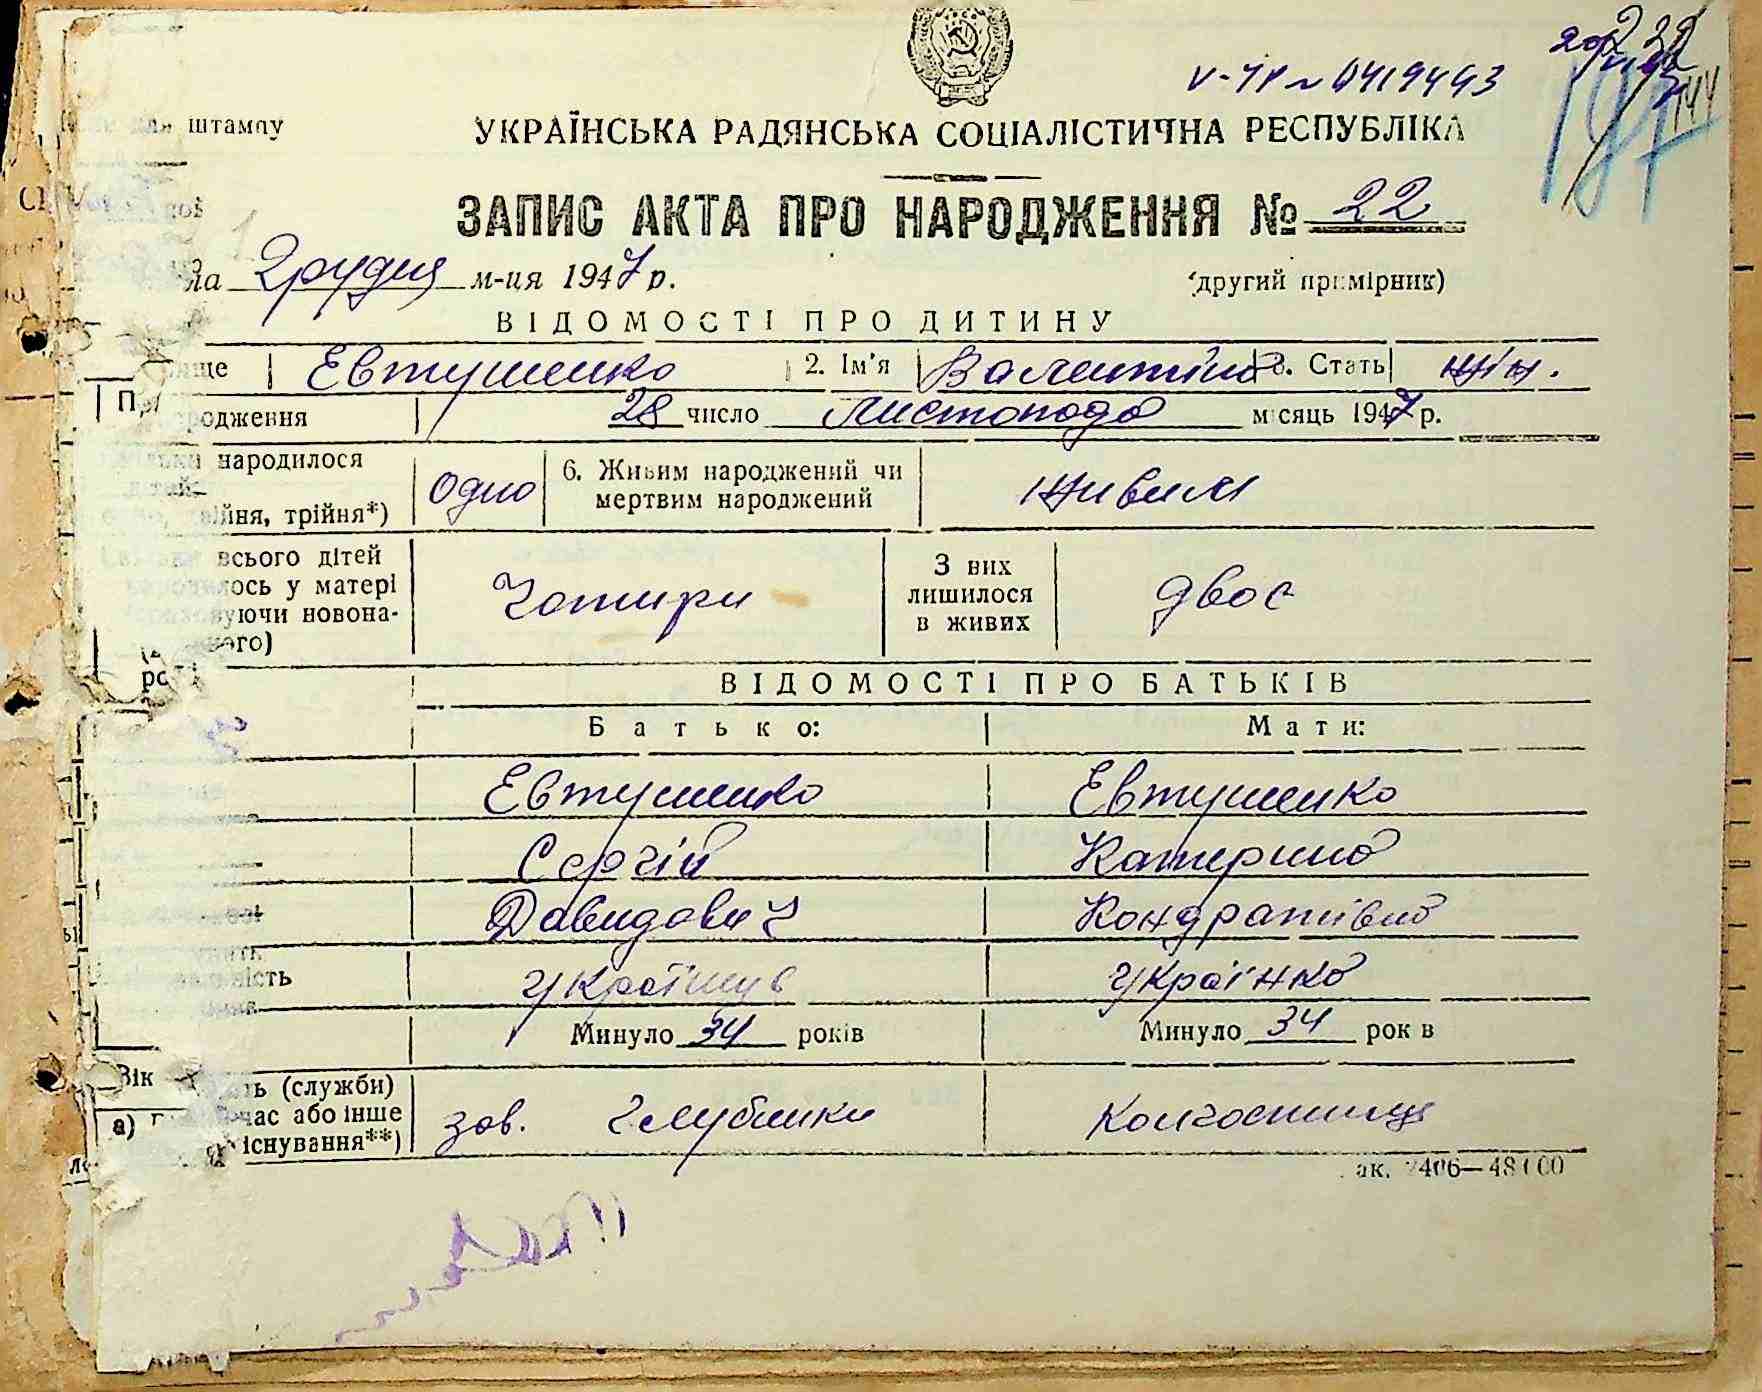 V-УР № 0419443
штампу
УКРАЇНСЬКА РАДЯНСЬКА СОЦІАЛІСТИЧНА РЕСПУБЛІКА
ЗАПИС АКТА ПРО НАРОДЖЕННЯ № 22
грудня м-ця 1947 р.
(другий примірник)
ВІДОМОСТІ ПРО ДИТИНУ
Евтушенко 2. Ім'я Валентина 3. Стать жін.
28 число Листопада місяць 1947 р.
народилося
трійня*) Одно 6. Живим народжений чи
мертвим народжений живим
всього дітей
у матері
новона-
Чотири З них
лишилося
в живих двоє
ВІДОМОСТІ ПРО БАТЬКІВ
Батько: Мати:
Евтушенко Евтушенко
Сергій Катерина
Давидович Кондратівна
Українец Українка
Минуло 34 років Минуло 34 років
Вік
(служби)
час або інше
існування**) зов. Колгоспниця
а)
ак. 2406—48100